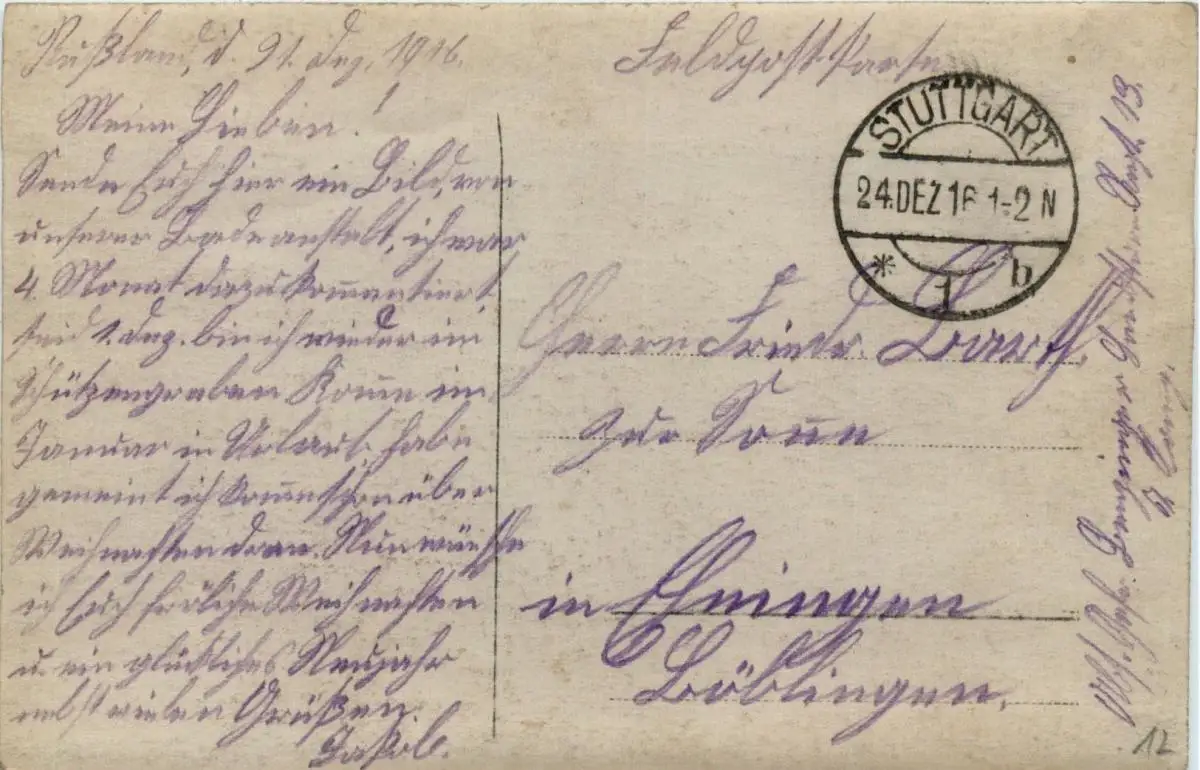 Rußland, d. 21. Dez. 1916.
Meine Lieben!
Sende Euch hier ein Bild, von
unserer Badeanstalt, ich war
4. Monat dazu kommantiert
seid 1. Dez. bin ich wieder im
Schützengraben Komme im
Januar in Urlaub. habe
gemeint ich komme schon über
Weihnachten dran. Nun wünsche
ich Euch fröliche Weihnachten
u. ein glückliches Neujahr
nebst vielen Grüßen
Jakob.
Feldpostkarte
STUTTGART
24.DEZ 16 1-2 N
* 1 b
Herrn Friedr. Barth.
zur Sonne
in Ehningen
Böblingen.
Abs. 13.
12